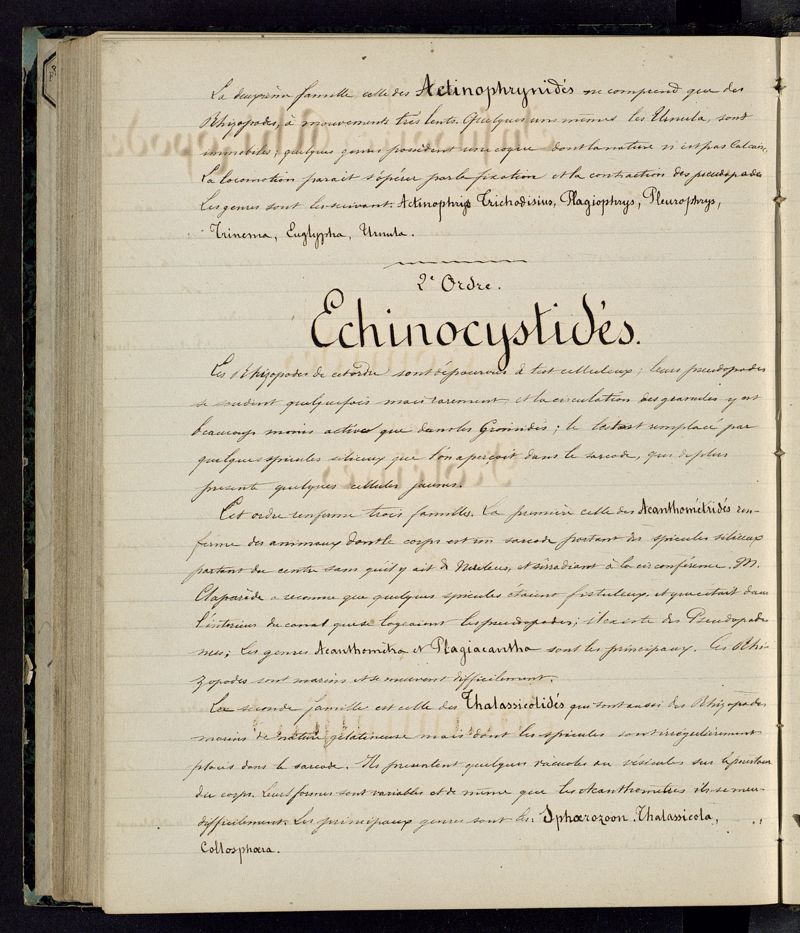 La deuxième famille celle des Actinophrynidés ne comprend que des
Rhizopodes, à mouvements très lents. Quelques uns mêmes les Urnula, sont
immobiles; quelques genres possèdent une coque dont la nature n'est pas calcaire.
La locomotion parait s'opérer par la fixation et la contraction des pseudopodes
Les genres sont les suivant. Actinophrys Trichodisius, Plagiophrys, Pleurophrys,
Trinema, Euglypha, Urnula.
2e Ordre.
Echinocystidés.
Les Rhizopodes de cet ordre sont dépourvus de test celluleux; leurs pseudopodes
se soudent quelquefois mais rarement, et la circulation des granules y est
beaucoup moins active que dans les Gromidés; le test est remplacé par
quelques spicules siliceux que l'on aperçoit dans le sarcode, qui de plus
présente quelques cellules jaunes.
Cet ordre renferme trois familles. La première celle des Acanthométridés ren-
ferme des animaux dont le corps est un sarcode portant des spicules siliceux
partant du centre sans qu'il y ait de Nucleus, et s'irradiant à la circonférence. M.
Claparède a reconnu que quelques spicules étaient fistuleux et que c'était dans
l'intérieur du canal que se logeaient les pseudopodes; il existe des Pseudopodes
nus; Les genres Acanthomitra et Plagiacantha sont les principaux. Ces Rhi-
zopodes sont marins et se meuvent difficilement.
La seconde famille est celle des Thalassicolidés qui sont aussi des Rhizopodes
marins de nature gélatineuse mais dont les spicules sont irrégulièrement
placés dans le sarcode. Ils présentent quelques vacuoles ou vésicules sur le pourtour
du corps. Leurs formes sont variables et de même que les Acanthomètres ils se meu-
difficilement. Les principaux genres sont les Sphærozoon. Thalassicola,
Collosphæra.